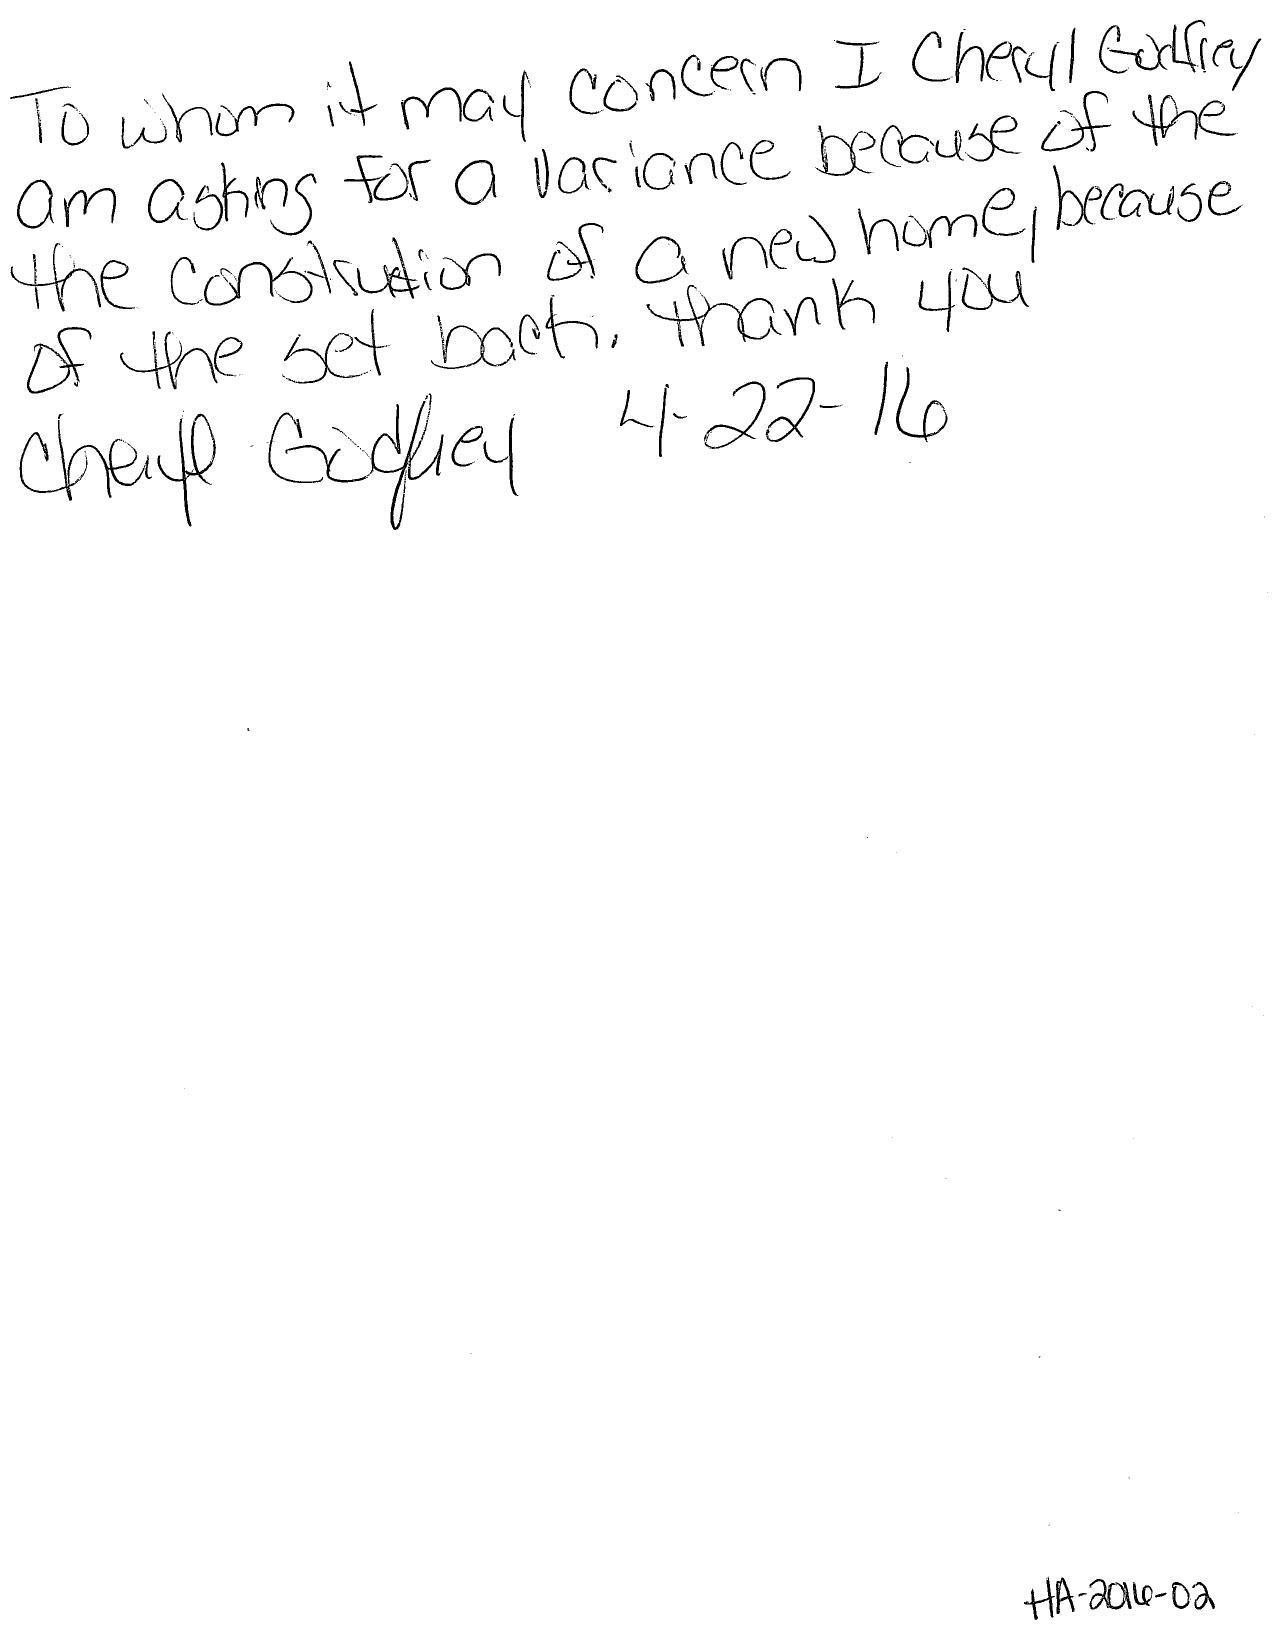 To whom it may concern I Cheryl Godfrey
am asking for a variance because of the
the construction of a new home, because
of the set back. thank you
Cheryl Godfrey 4-22-16
HA-2016-02